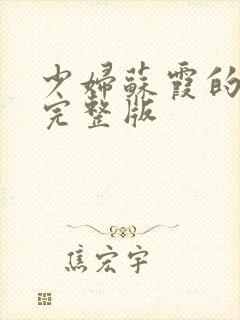 少婦蘇霞的
完整版
焦宏宇